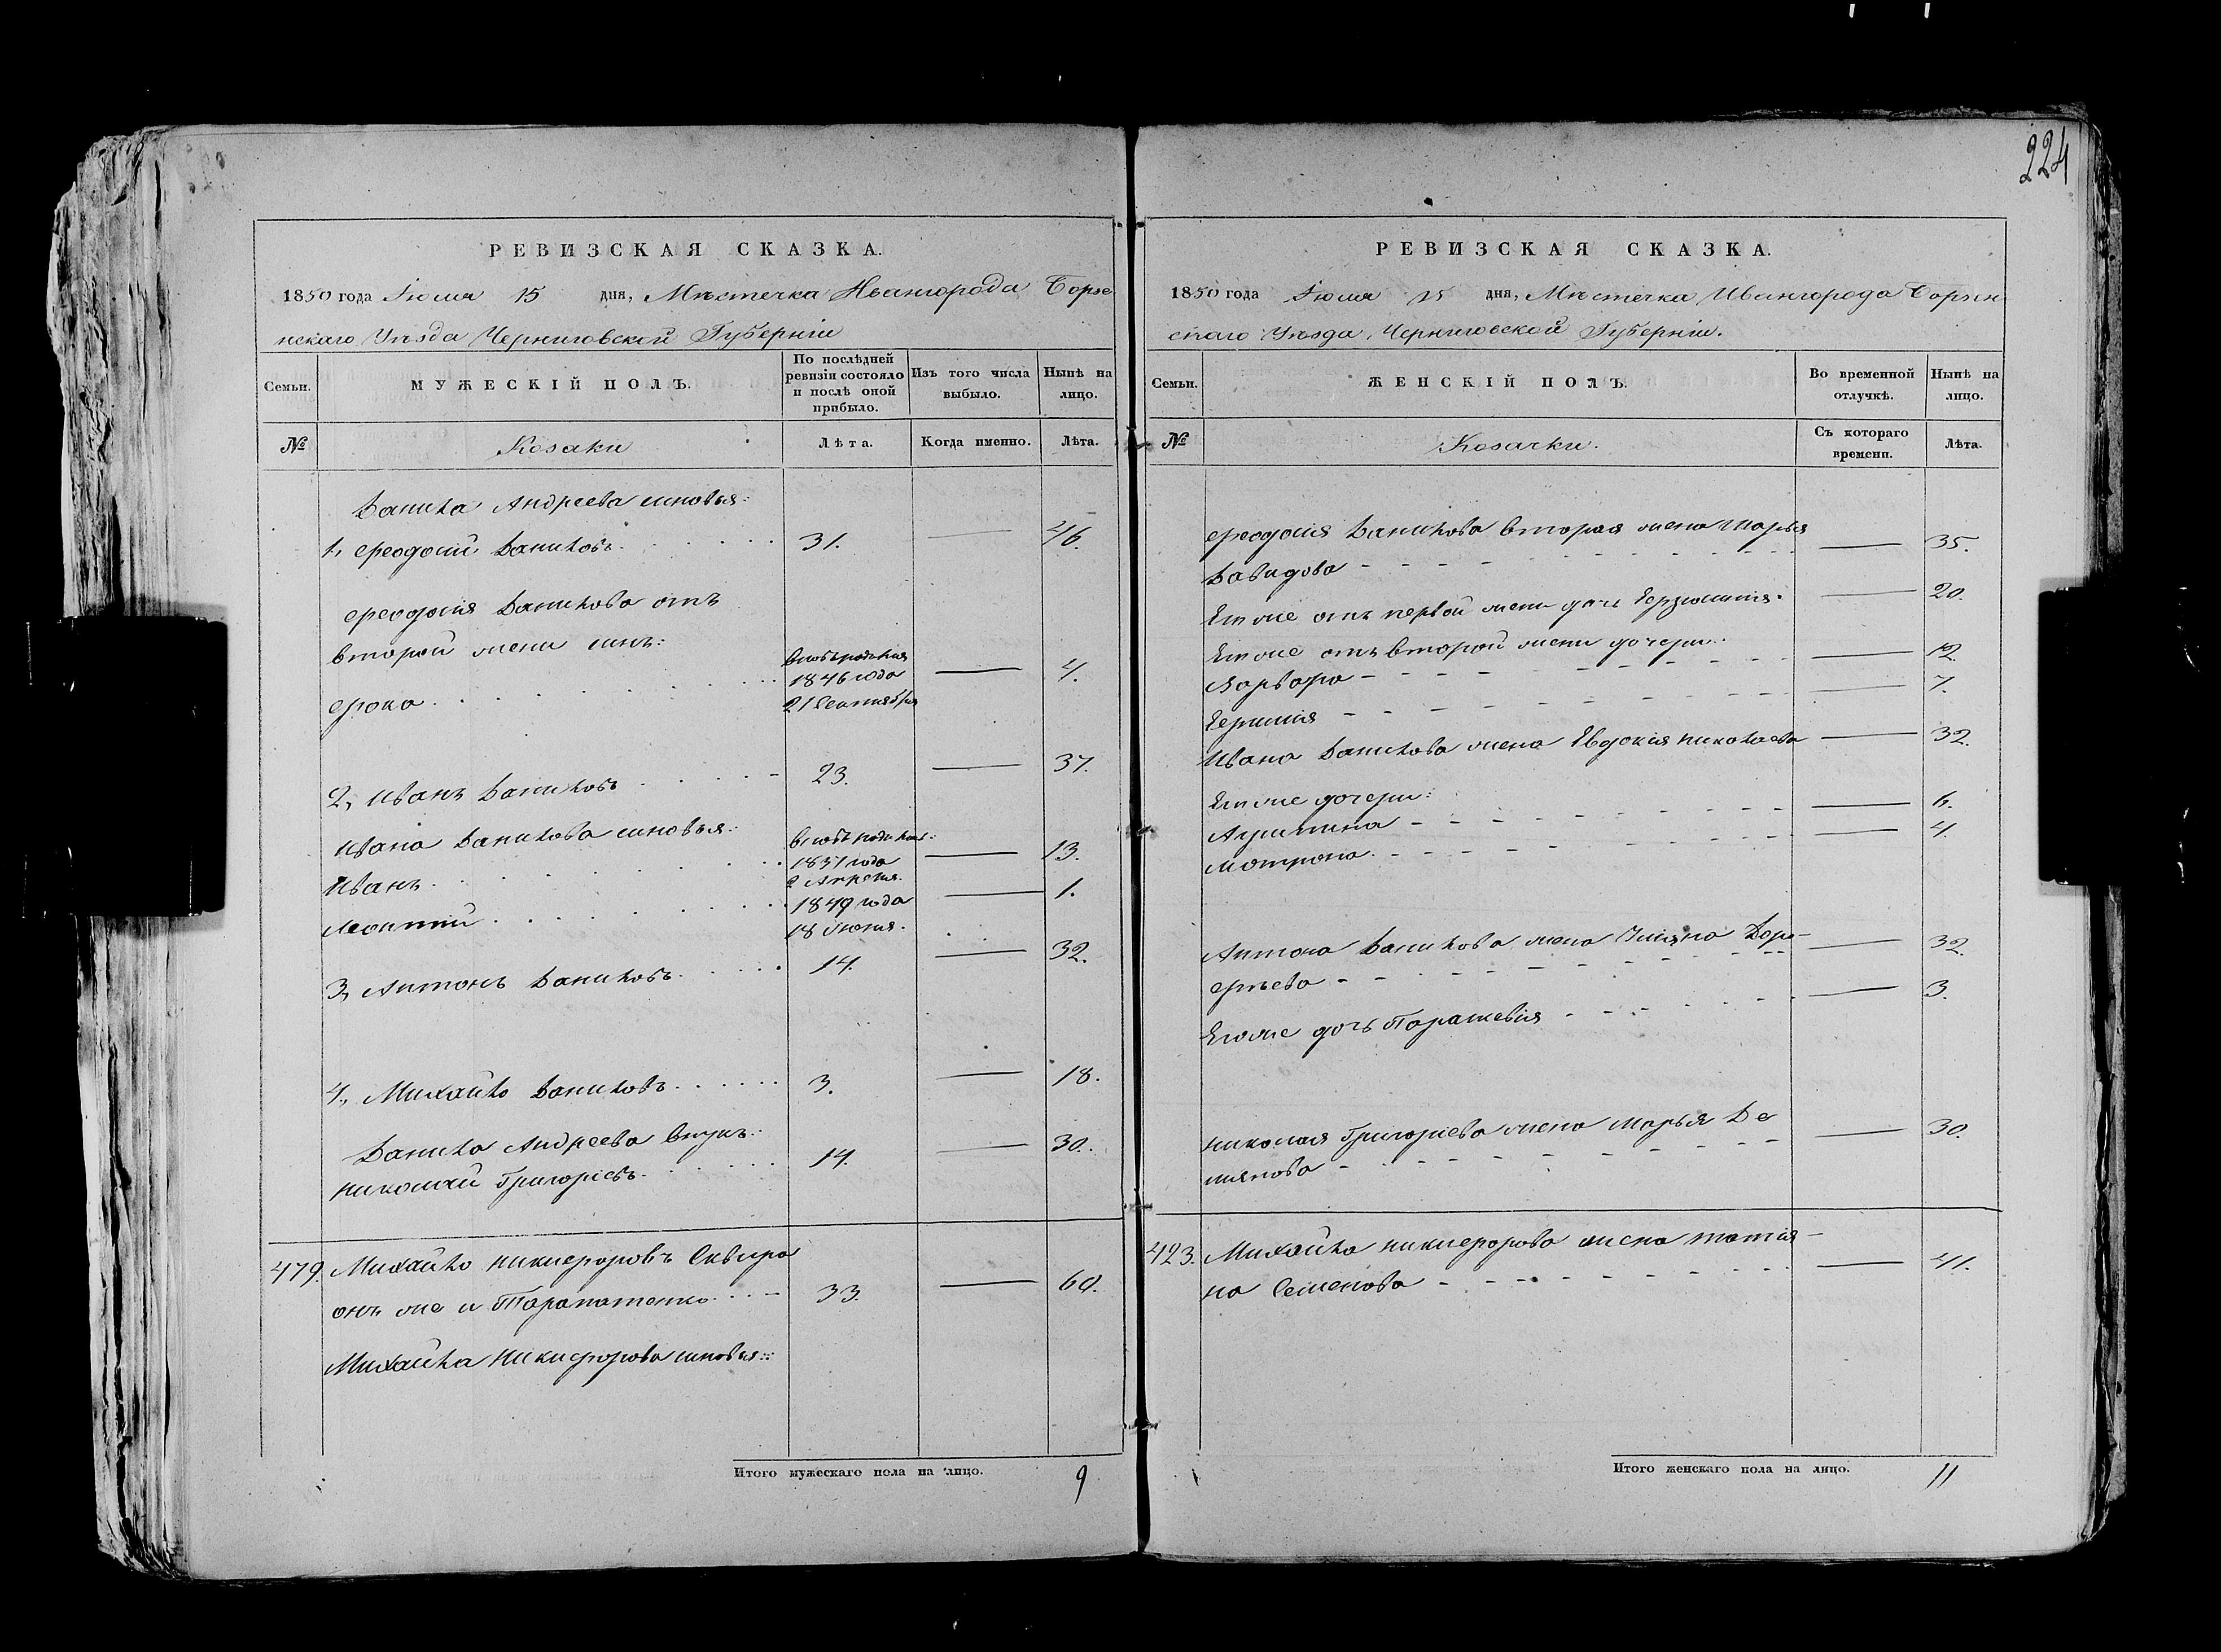 224
РЕВИЗСКАЯ СКАЗКА.
1850 года Іюля 15 дня, Мѣстечка Ивангорода Борзе
нскаго Уѣзда Черниговской Губерніи
Семьи.
МУЖЕСКІЙ ПОЛЪ.
По послѣдней ревизіи состояло и послѣ оной прибыло.
Изъ того числа выбыло.
Нынѣ на лицо.
№
Козаки
Лѣта.
Когда именно.
Лѣта.
Данила Андреева сыновья:
1, Феодосій Даниловъ 31. — 46.
Феодосія Данилова отъ
второй жены сынъ:
Фрока
1846 года
21 Сентября — 4.
2, Иванъ Даниловъ 23. — 37.
Ивана Данилова сыновья:
Иванъ
1837 года
2 Апреля. — 13.
Леонтій
1849 года
18 Июня. — 1.
3, Антонъ Даниловъ 14. — 32.
4, Михайло Даниловъ 3. — 18.
Данила Андреева внукъ:
Николай Григорiевъ 14. — 30.
479. Михайло Никифоровъ Сквира
онъ же и Тарапатенко 33. — 60.
Михайла Никифорова сыновья:
Итого мужескаго пола на лицо. 9
РЕВИЗСКАЯ СКАЗКА.
1850 года Іюля 15 дня, Мѣстечка Ивангорода Борзен
скаго Уѣзда, Черниговской Губерніи.
Семьи.
ЖЕНСКІЙ ПОЛЪ.
Во временной отлучкѣ.
Нынѣ на лицо.
№
Козачки.
Съ котораго времени.
Лѣта.
Феодосія Данилова вторая жена Марья
Давидова — 35.
Его же отъ первой жены дочь — 20.
Его же отъ второй жены дочери:
Варвара — 12.
Ефимія — 7.
Ивана Данилова жена Евдокія Николаева — 32.
Его же дочери:
Акулина — 6.
Мотрона — 4.
Антона Данилова жена Уліяна Доро-
фѣева — 32.
Его же дочь Параскевія — 3.
Николая Григоріева жена Марья Де
міянова — 30.
423. Михайла Никифорова жена Татія-
на Семенова — 41.
Итого женскаго пола на лицо. 11